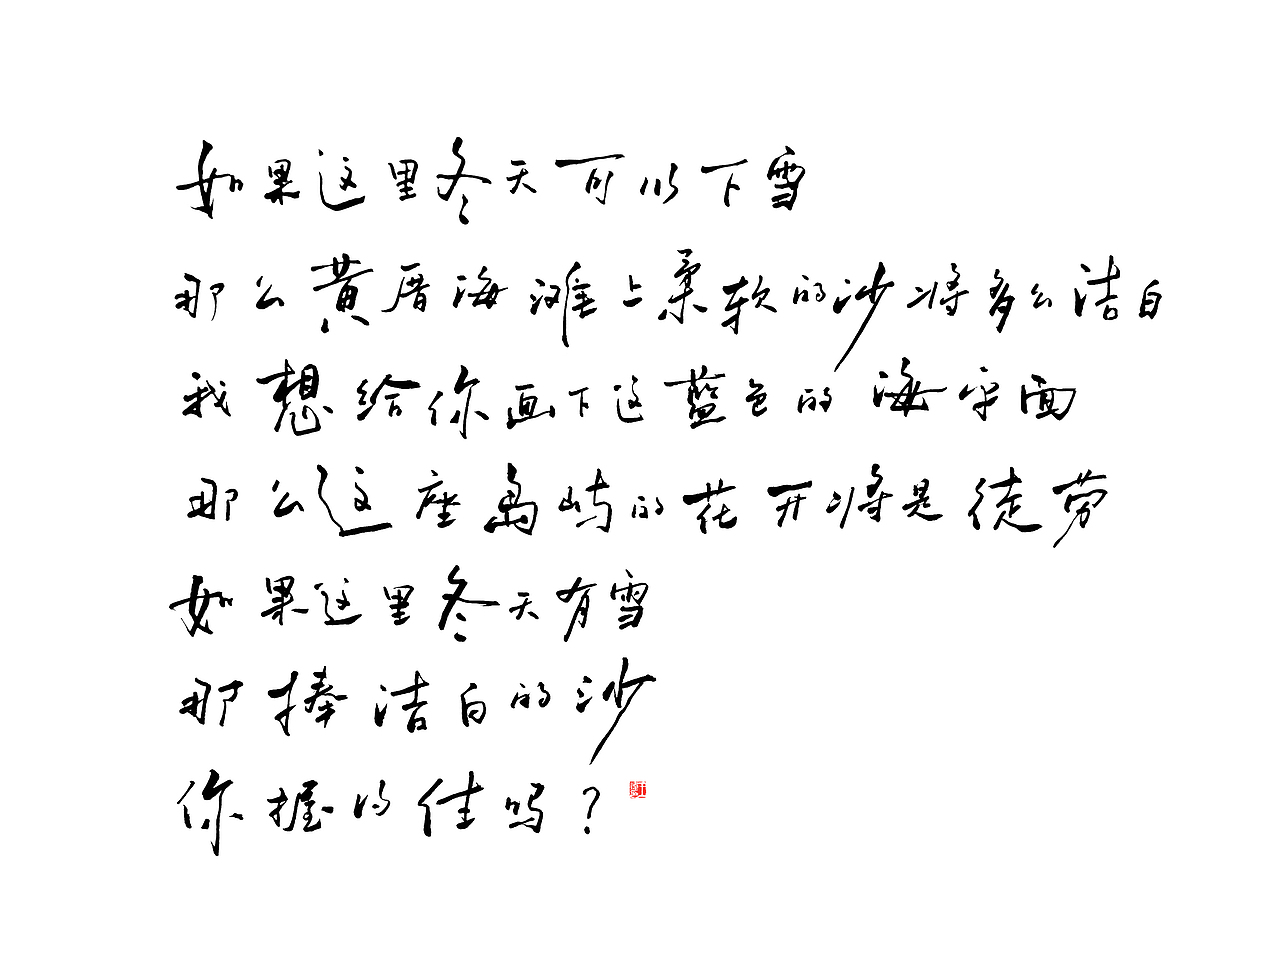 如果这里冬天可以下雪
那么黄厝海滩上柔软的沙将多么洁白
我想给你画下这蓝色的海平面
那么这座岛屿的花开将是徒劳
如果这里冬天有雪
那捧洁白的沙
你握的住吗？